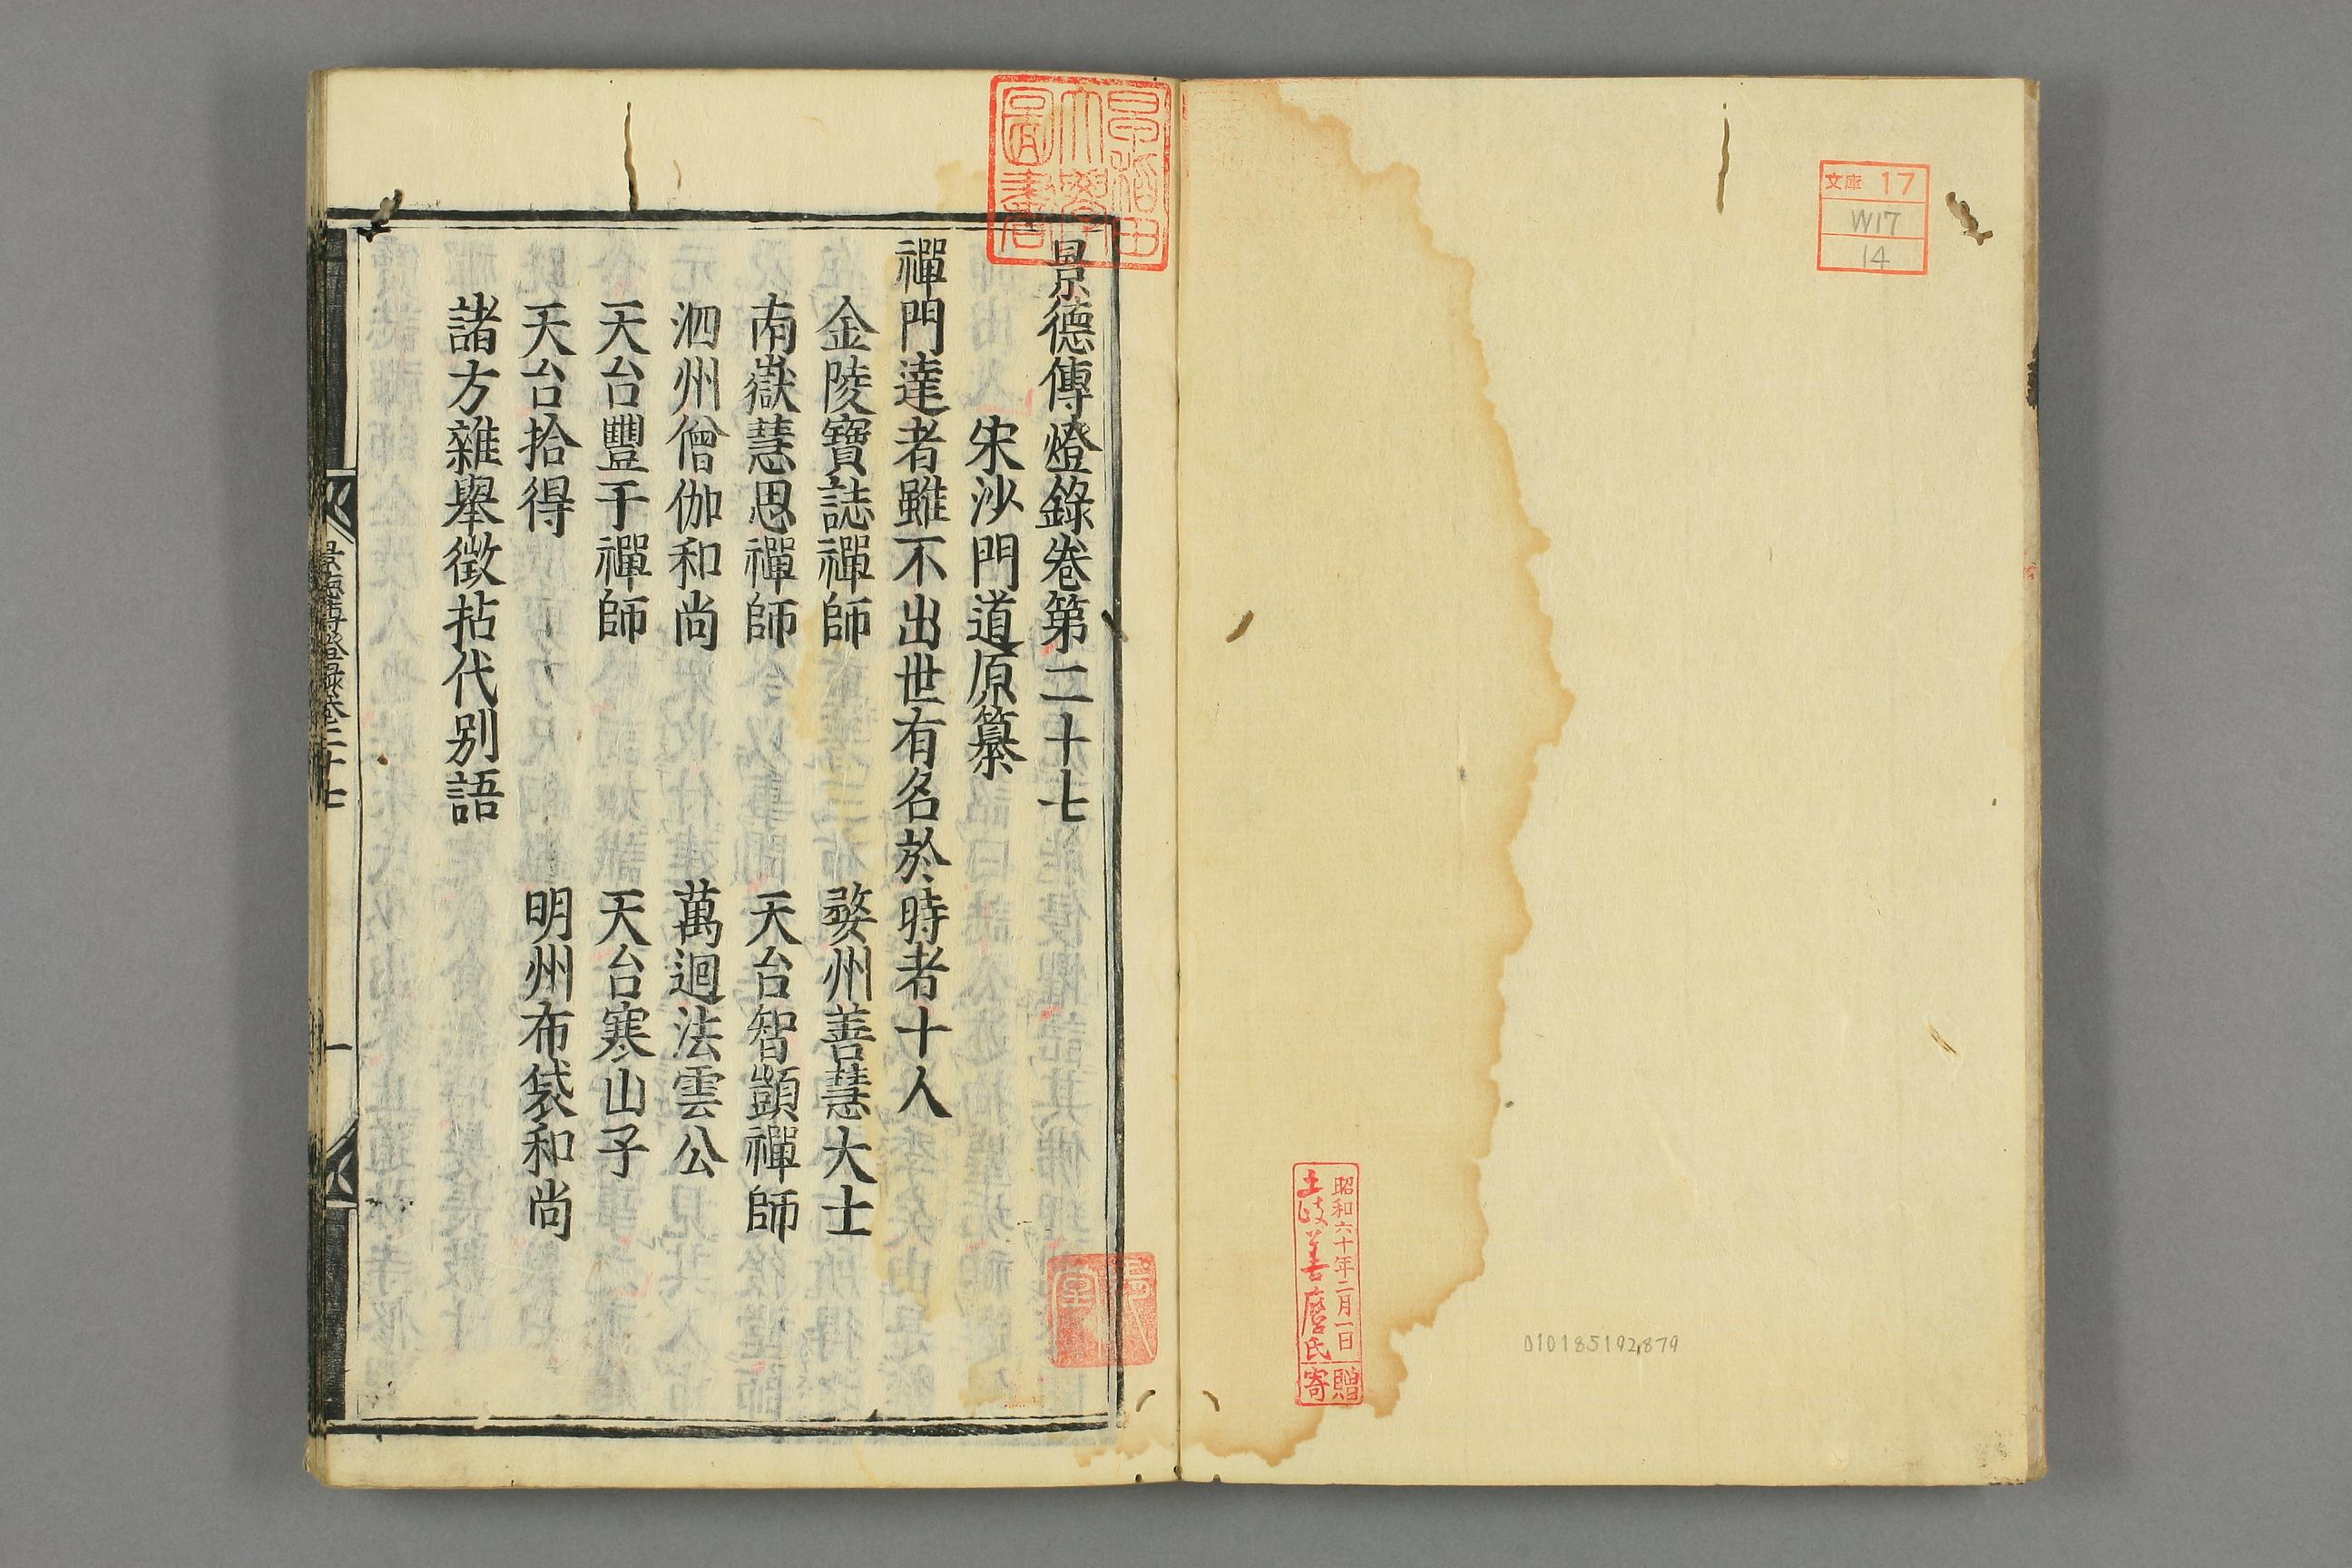 文庫 17
W17
14
昭和六十年二月一日
土岐善麿氏
寄贈
010185192879
早稲田
大學
圖書
景德傳燈錄卷第二十七
宋沙門道原纂
禪門達者雖不出世有名於時者十人
金陵寶誌禪師 婺州善慧大士
南嶽慧思禪師 天台智顗禪師
泗州僧伽和尚 萬迴法雲公
天台豐干禪師 天台寒山子
天台拾得 明州布袋和尚
諸方雜舉徵拈代別語
景德傳燈錄卷二十七
一